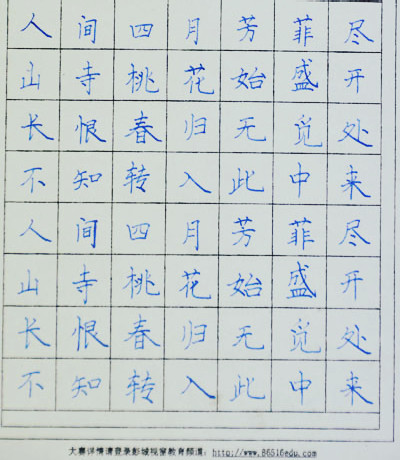 人间四月芳菲尽
山寺桃花始盛开
长恨春归无觅处
不知转入此中来
人间四月芳菲尽
山寺桃花始盛开
长恨春归无觅处
不知转入此中来
大赛详情请登录彭城视窗教育频道：http://www.86516edu.com